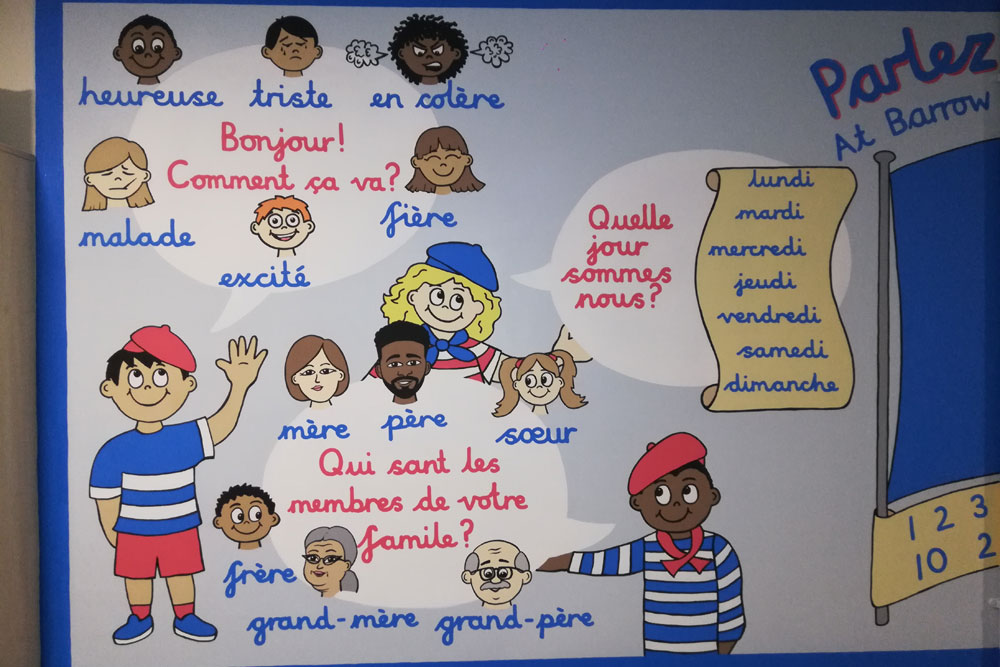 heureuse triste en colère
Bonjour!
Comment ça va?
malade
fière
excité
Quelle
jour
sommes
nous?
lundi
mardi
mercredi
jeudi
vendredi
samedi
dimanche
Parlez
At Barrow
mère père sœur
Qui sant les
membres de votre
famile?
frère
grand-mère grand-père
1 2 3
10 2